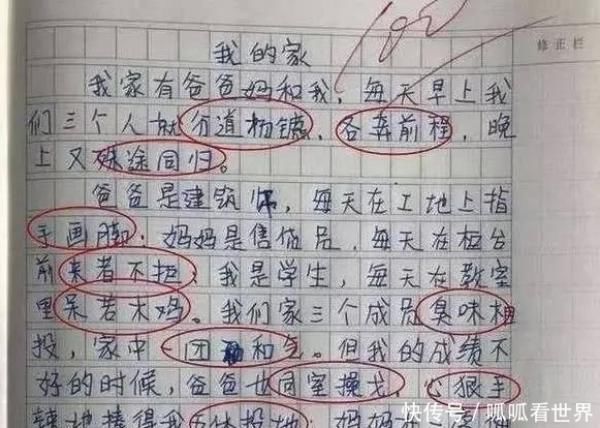 100
修正栏
我的家
我家有爸爸妈和我，每天早上我
们三个人就分道扬镳，各奔前程，晚
上又殊途同归。
爸爸是建筑师，每天在工地上指
手画脚；妈妈是售货员，每天在柜台
前来者不拒；我是学生，每天在教室
里呆若木鸡。我们家三个成员臭味相
投，家中团和气。但我的成绩不
好的时候，爸爸也同室操戈，心狠手
辣地揍得我五体投地；妈妈
快传号／呱呱看世界